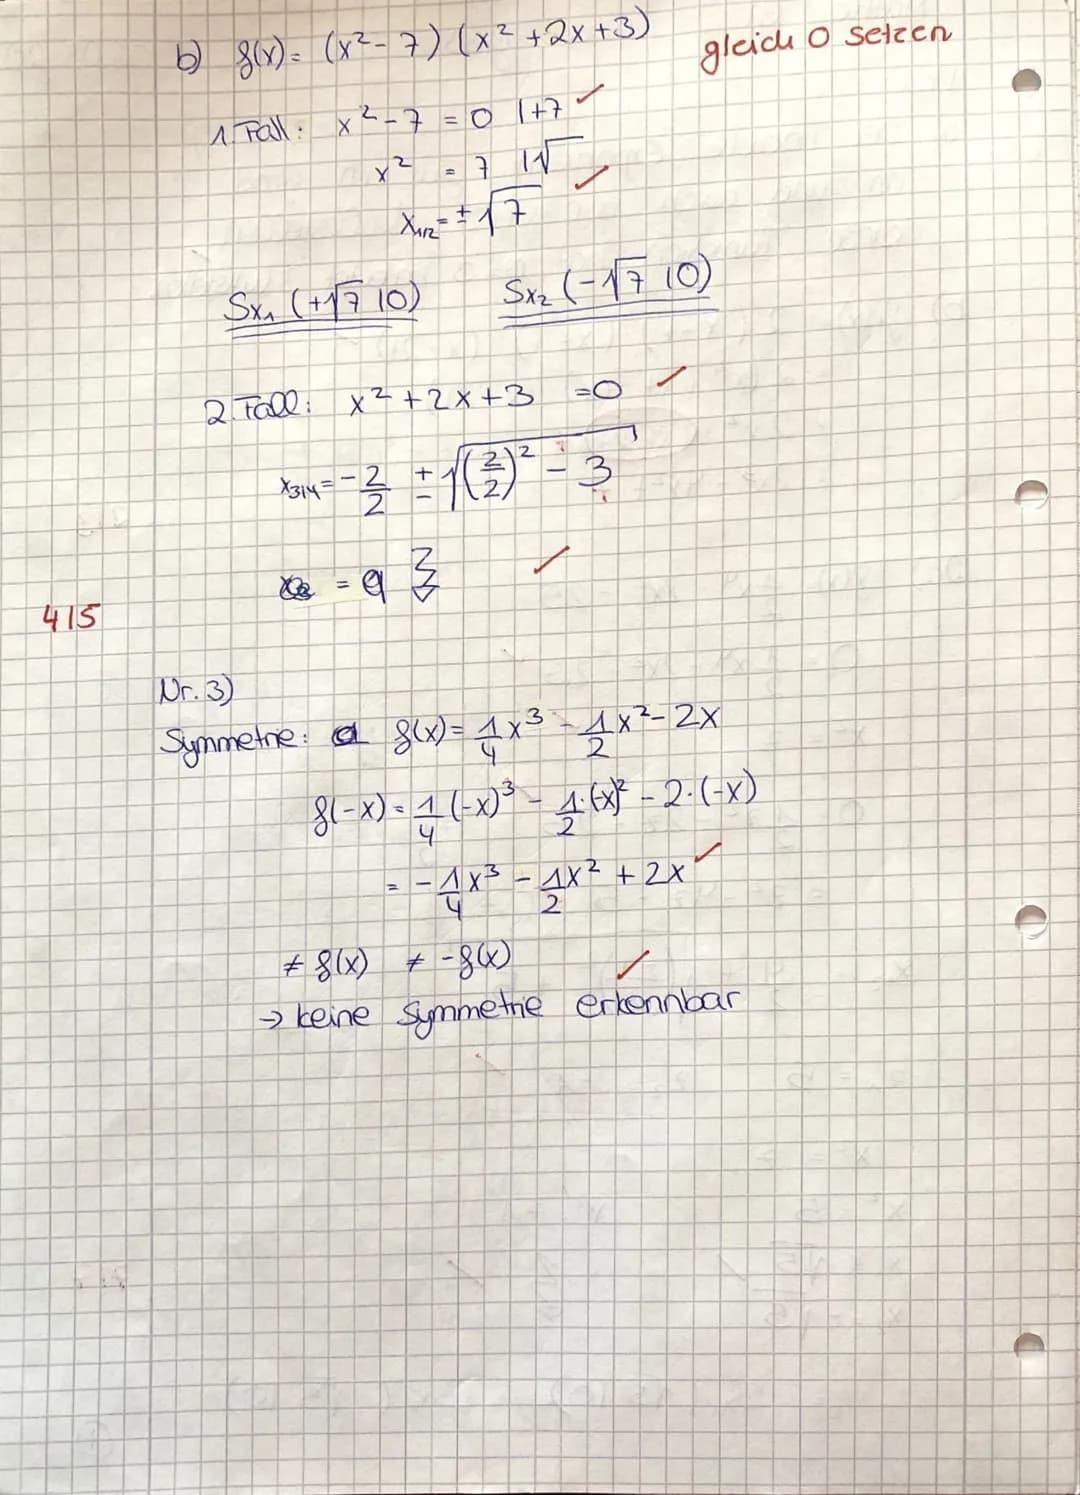 b) f(x) = (x² - 7) (x² + 2x + 3) gleich 0 setzen
1. Fall: x² - 7 = 0 | +7 ✓
x² = 7 | √
x₁/₂ = ±√7 ✓
Sx₁ (+√7 | 0) Sx₂ (-√7 | 0)
2. Fall: x² + 2x + 3 = 0 ✓
x₃/₄ = -2/2 ± √((2/2)² - 3)
= ✓
4/5
Nr. 3)
Symmetrie: f(x) = 1/4 x³ - 1/2 x² - 2x
f(-x) = 1/4 (-x)³ - 1/2 · (-x)² - 2 · (-x)
= - 1/4 x³ - 1/2 x² + 2x ✓
≠ f(x) ≠ -f(x) ✓
→ keine Symmetrie erkennbar